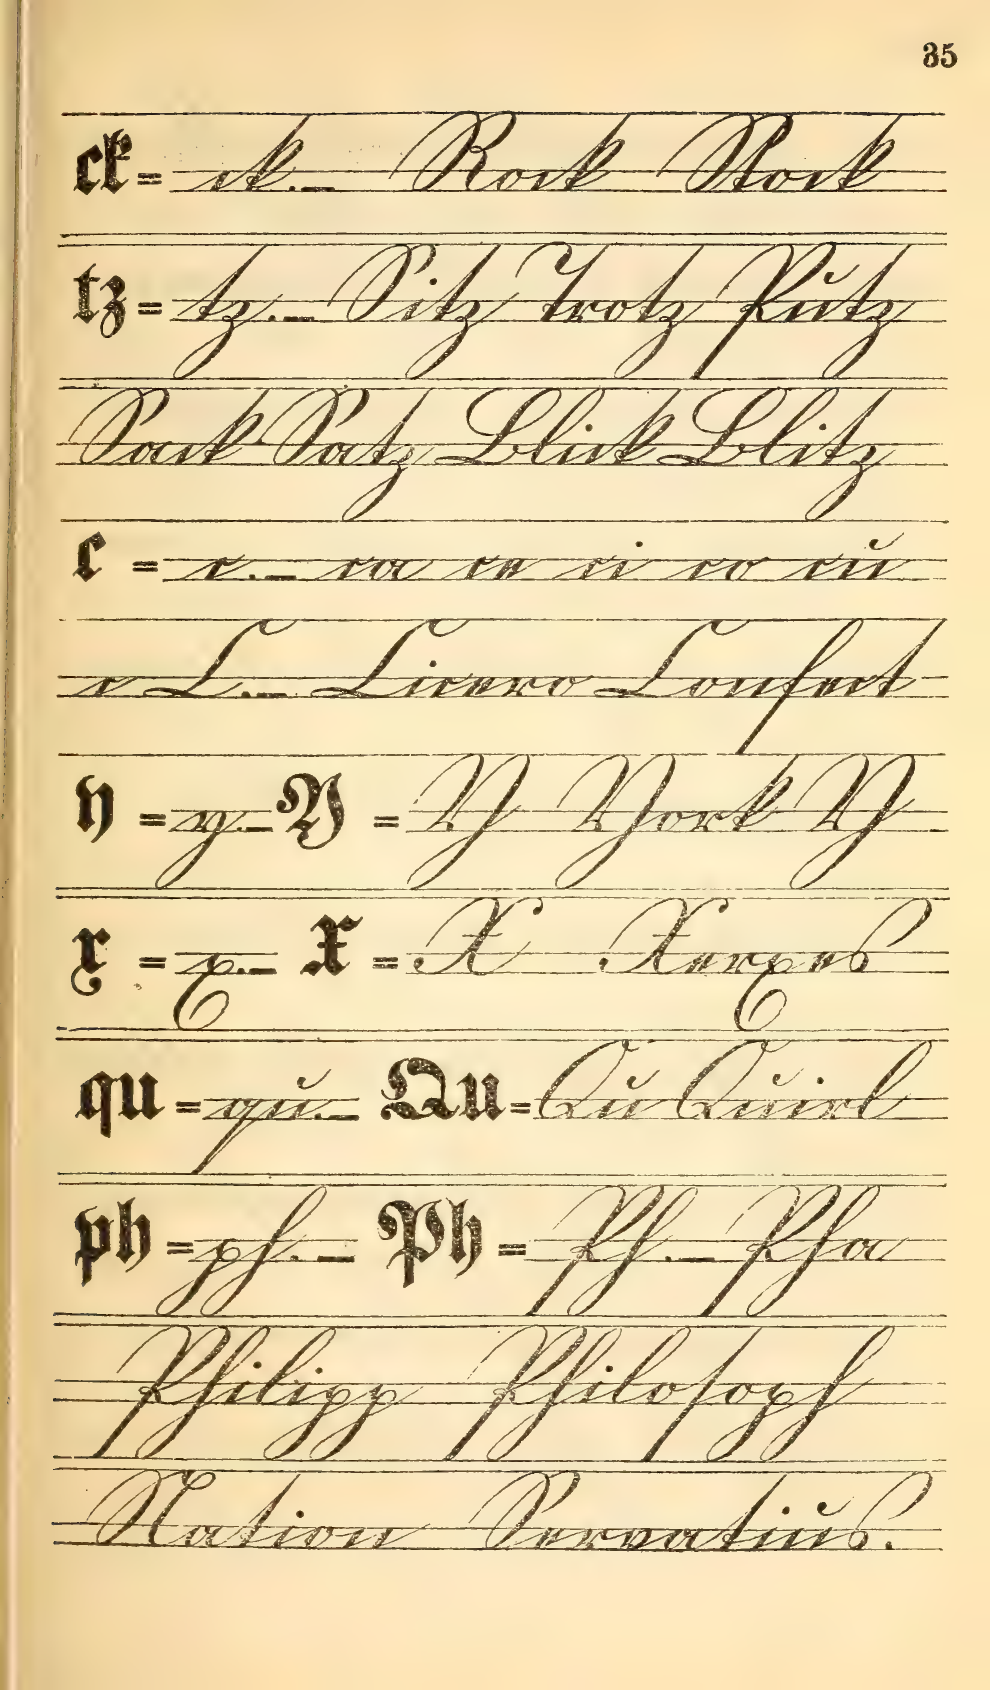 35
ck = ck. – Rock Stock
tz = tz. – Sitz Trotz Putz
Sack Satz Blick Blitz
c = c. – ca ce ci co cu
c C. – Cicero Confect
y = y. – Y = Y York Y
x = x. – X = X Xerxes
qu = qu. – Qu = Qu Quirl
ph = ph. – Ph = Ph. – Pha
Philipp Philoſoph
Nation Servatius.